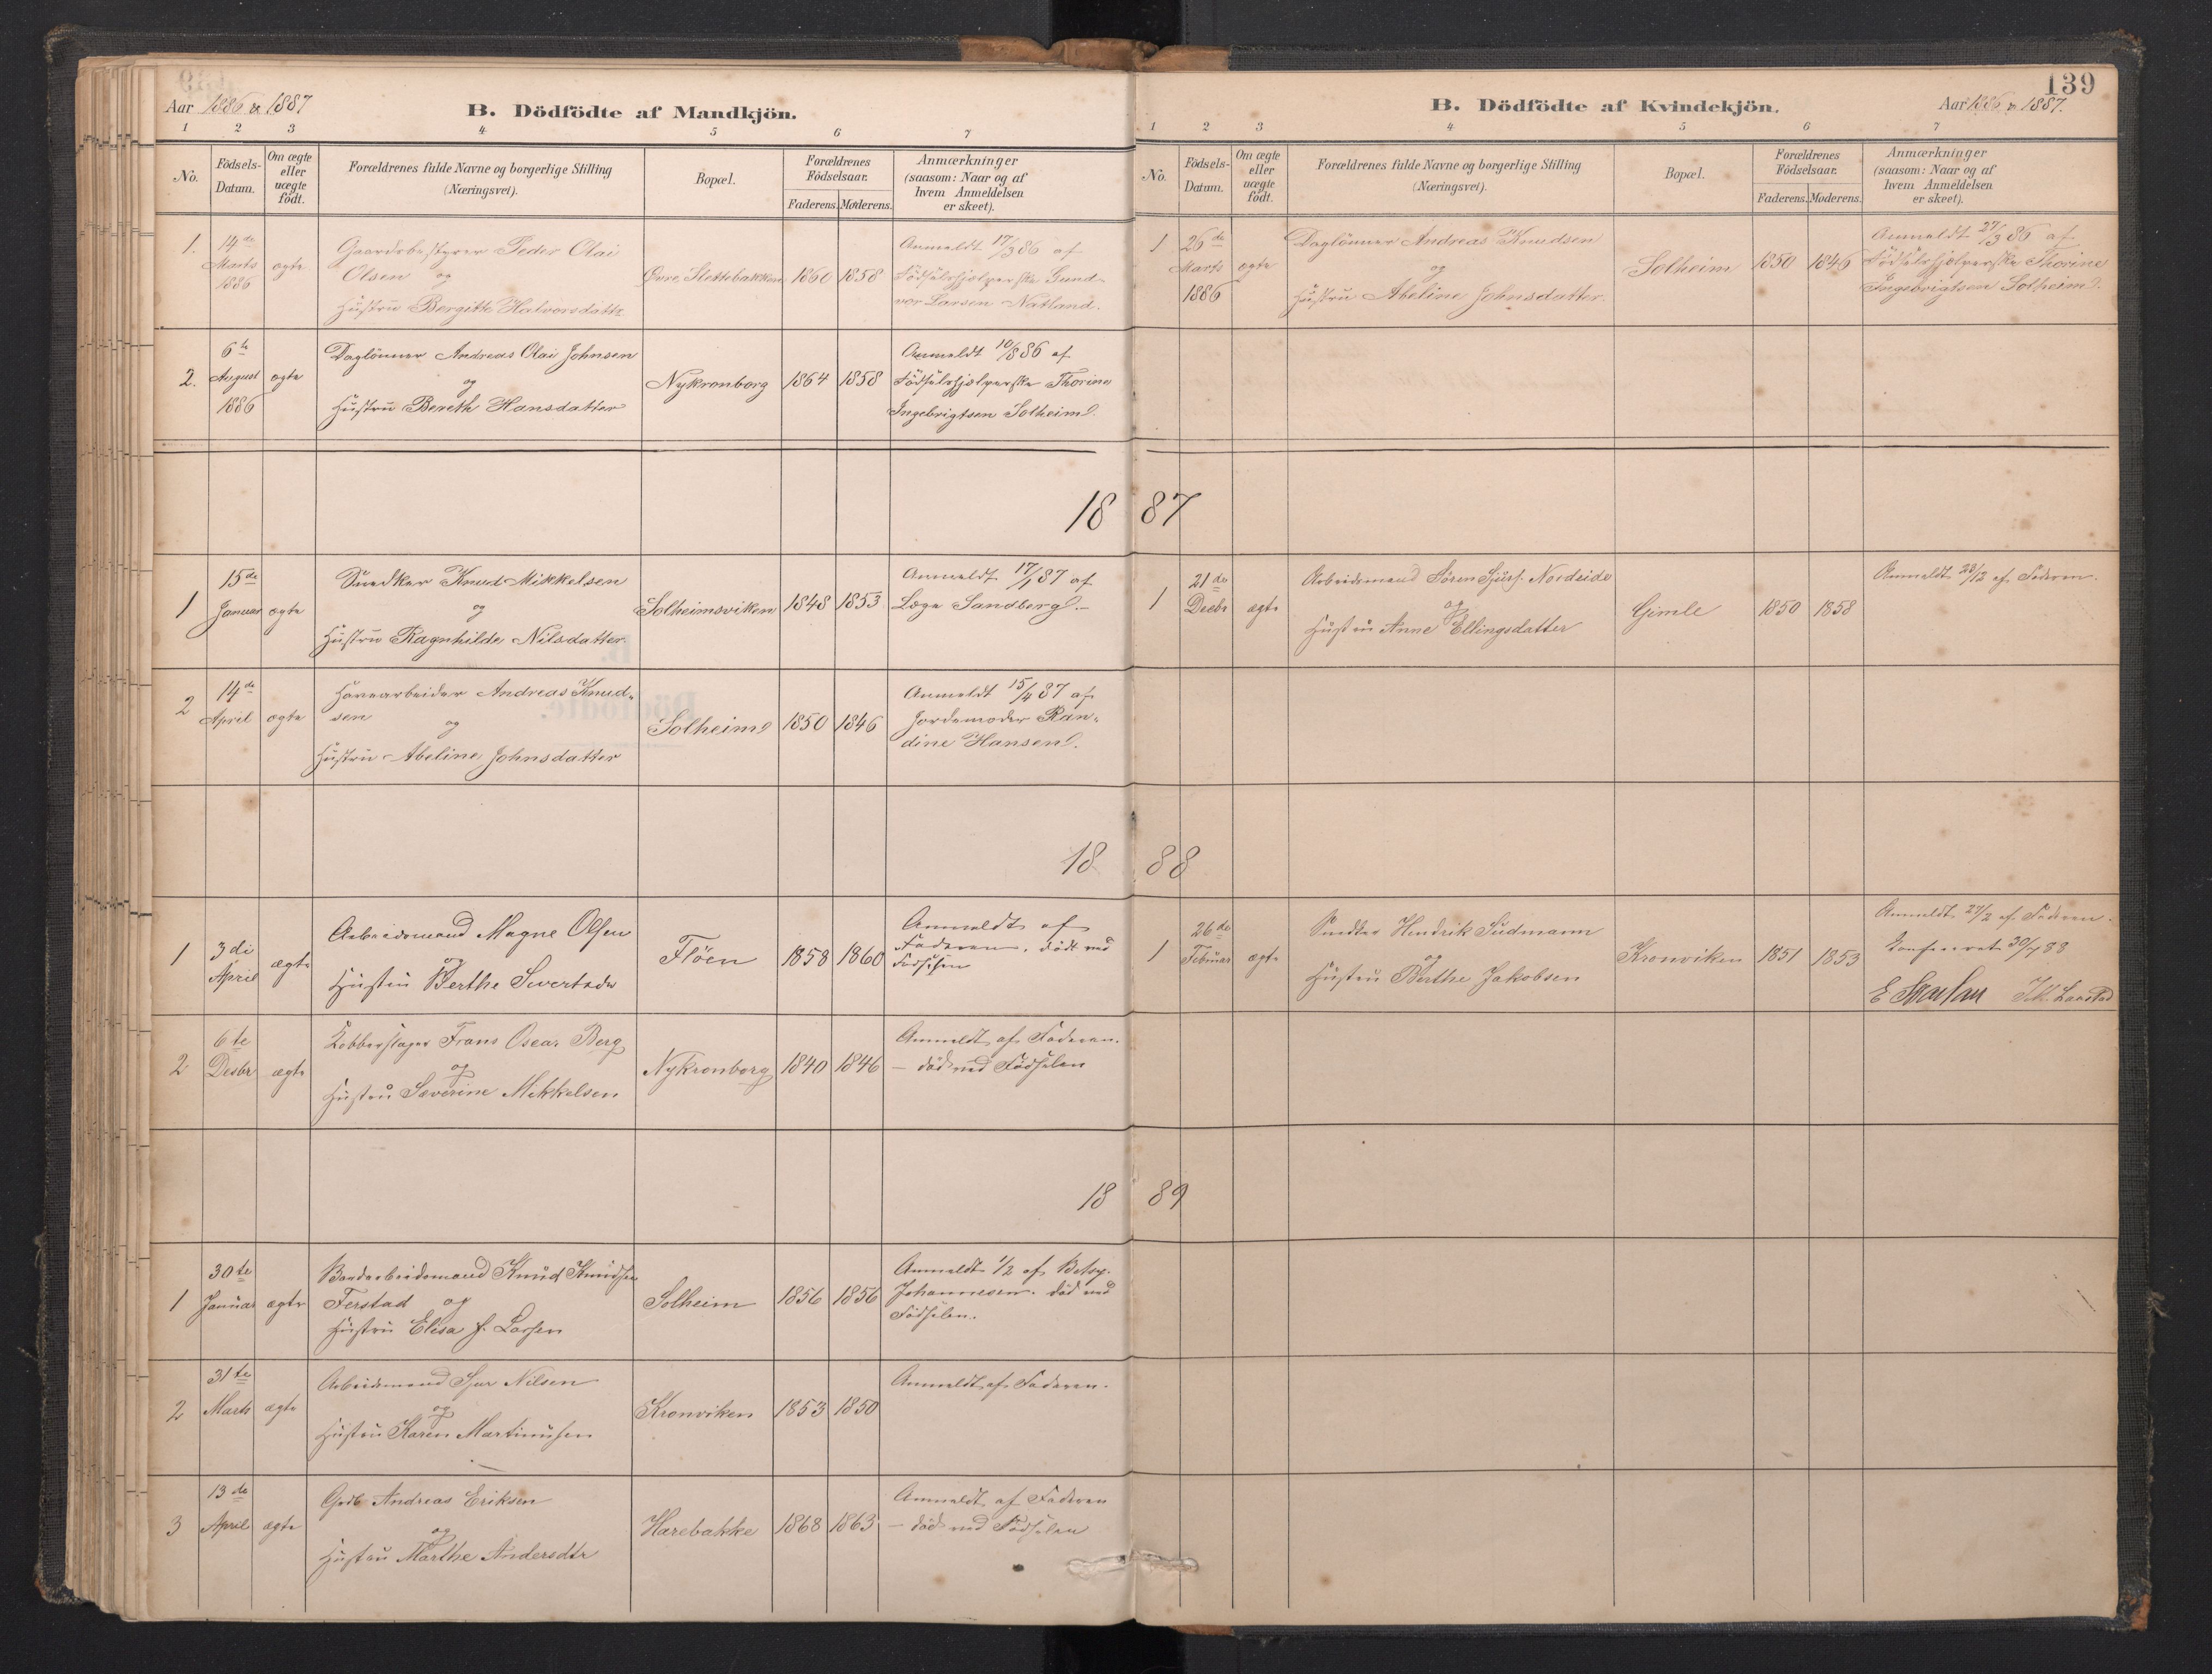 Aar 1886 & 1887
B. Dödfödte af Mandkjön.
1 2 3 4 5 6 7
No.
Födsels-
Datum.
Om ægte
eller
uægte
födt.
Forældrenes fulde Navne og borgerlige Stilling
(Næringsvei).
Bopæl.
Forældrenes
Födselsaar.
Faderens. Moderens.
Anmærkninger
(saasom: Naar og af
hvem Anmeldelsen
er skeet).
1. 14de
Marts
1886
ægte
Gaardsbestyrer Peder Olai
Olsen og
Hustru Bergitte Halvorsdatter
Övre Slettebakken 1860 1858
Anmeldt 17/3 86 af
Födselshjælperske Gund-
vor Larsen Natland.
2. 6te
August
1886
ægte
Daglönner Andreas Olai Johnsen
og
Hustru Bereth Hansdatter
Nykronborg 1864 1858
Anmeldt 10/8 86 af
Födselshjælperske Thorine
Ingebrigtsen Solheim.
18
1 15de
Januar ægte
Snedker Knud Mikkelsen
og
Hustru Ragnhilde Nilsdatter
Solheimsviken 1848 1853
Anmeldt 17/1 87 af
Læge Sandberg.
2 14de
April ægte
Havnearbeider Andreas Knud-
sen
og
Hustru Abeline Johnsdatter
Solheim 1850 1846
Anmeldt 15/4 87 af
Jordemoder Ran-
dine Hansen.
18
1 3di
April ægte
Arbeidsmand Magne Olsen
og
Hustru Berthe Sivertsdr
Flöen 1858 1860
Anmeldt af
Faderen. död ved
Födselen
2 6te
Desbr ægte
Kobberslager Frans Oscar Berg
og
Hustru Severine Mikkelsen
Nykronborg 1840 1846
Anmeldt af Faderen.
– död ved Födselen
18
1 30te
Januar ægte
Knud Knudsen
Ferstad og
Hustru Elisa J. Larsen
Solheim 1856 1856
Anmeldt 1/2 af Betsy
Johannesen. död ved
Födselen.
2 31te
Marts ægte
Arbeidsmand Sjur Nilsen
og
Hustru Karen Martinusen
Kronviken 1853 1850
Anmeldt af Faderen.
3 13de
April ægte
Andreas Eriksen
og
Hustru Marthe Andersdtr
Harebakke 1868 1863
Anmeldt af Faderen
– död ved Födselen
139
B. Dödfödte af Kvindekjön.
Aar 1886 & 1887.
1 2 3 4 5 6 7
No.
Födsels-
Datum.
Om ægte
eller
uægte
födt.
Forældrenes fulde Navne og borgerlige Stilling
(Næringsvei).
Bopæl.
Forældrenes
Födselsaar.
Faderens. Moderens.
Anmærkninger
(saasom: Naar og af
hvem Anmeldelsen
er skeet).
1 26de
Marts
1886
ægte
Daglönner Andreas Knudsen
og
Hustru Abeline Johnsdatter
Solheim 1850 1846
Anmeldt 27/3 86 af
Födselshjælperske Thorine
Ingebrigtsen Solheim.
87
1 21de
Decbr ægte
Arbeidsmand Sören Sjurs. Nordeide
og
Hustru Anne Ellingsdatter
Gimle 1850 1858
Anmeldt 28/12 af Faderen.
88
1 26de
Februar ægte
Hendrik Sudmann
og
Hustru Berthe Jakobsen
Kronviken 1851 1853
Anmeldt 27/2 af Faderen.
30/7 88
89